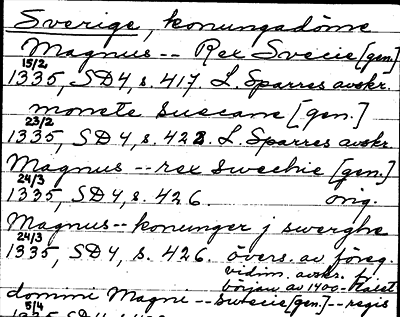 Sverige, konungadöme
Magnus -- Rex Svecie [gen.]
15/2
1335, SD4, s. 417. L. Sparres avskr.
monete suecane [gen.]
23/2
1335, SD4, s. 422. L. Sparres avskr.
Magnus -- rex swechie [gen.]
24/3
1335, SD4, s. 426. orig.
Magnus -- konunger j swerghe
24/3
1335, SD4, s. 426. övers. av föreg.
vidim. avskr. fr.
början av 1400-talet.
domini Magni -- swecie [gen.] -- regis
5/4